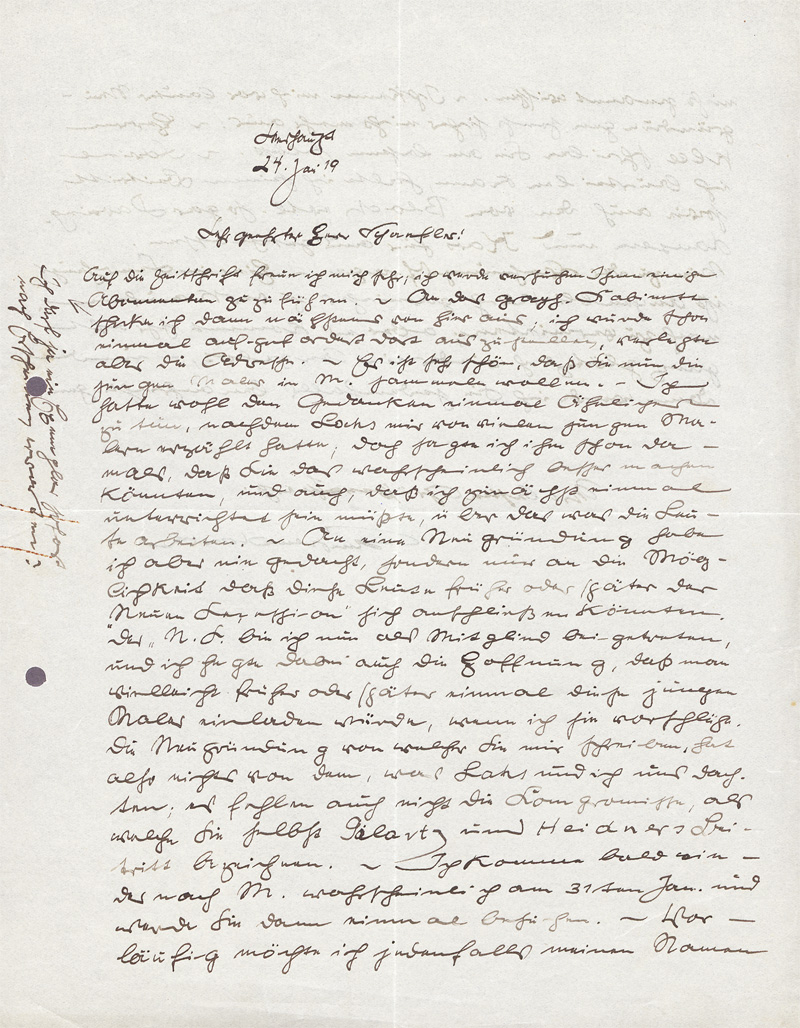 24. Jan 19
Sehr geehrter Herr
Auf die Zeitschrift freue ich mich sehr, ich werde versuchen Ihnen einige
Abonnenten zuzuführen. ~ An das graph. Kabinett
schicke ich dann nächstens von hier aus, ich wurde schon
einmal aufgefordert dort auszustellen, verlegte
aber die Adresse. ~ Es ist sehr schön, daß Sie nun die
jungen Maler in M. sammeln wollen. ~ Ich
hatte wohl den Gedanken einmal Ähnliches
zu tun, nachdem mir von vielen jungen Ma-
lern erzählt hatte; doch sagte ich ihm schon da-
mals, daß Sie das wahrscheinlich besser machen
könnten, und auch, daß ich zunächst einmal
unterrichtet sein müßte, über das was die Leu-
te arbeiten. ~ An eine Neugründung habe
ich aber nie gedacht, sondern nur an die Mög-
lichkeit daß diese Leute früher oder später der
"Neuen Secession" sich anschließen könnten.
Der "N. S. bin ich nun als Mitglied bei-getreten,
und ich hegte dabei auch die Hoffnung, daß man
vielleicht früher oder später einmal diese jungen
Maler einladen würde, wenn ich sie vorschlüge.
Die Neugründung von welcher Sie mir schreiben, hat
also nichts von dem, was und ich uns dach-
ten; es fehlen auch nicht die Kompromisse, als
welche Sie selbst und Heidners Bei-
tritt bezeichnen. ~ Ich komme bald wie-
der nach M. wahrscheinlich am 31ten Jan. und
werde Sie dann einmal besuchen. ~ Vor-
läufig möchte ich jedenfalls meinen Namen
Ich darf sie
nach